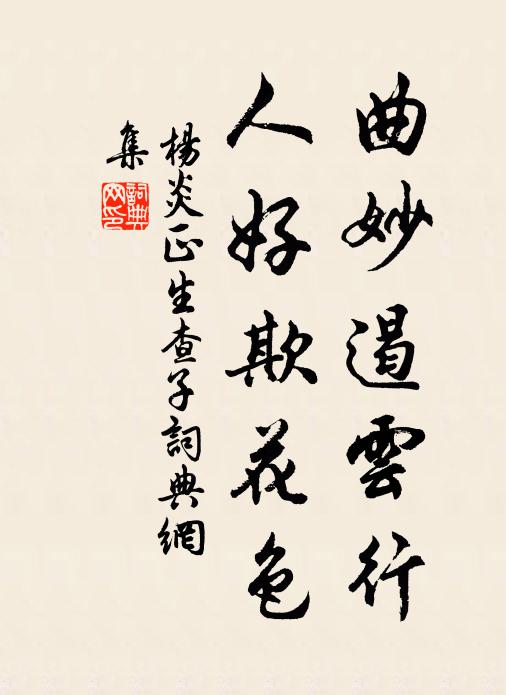 曲妙遏雲行
人好欺花色
楊炎正生查子詞典網
集
詞典網印